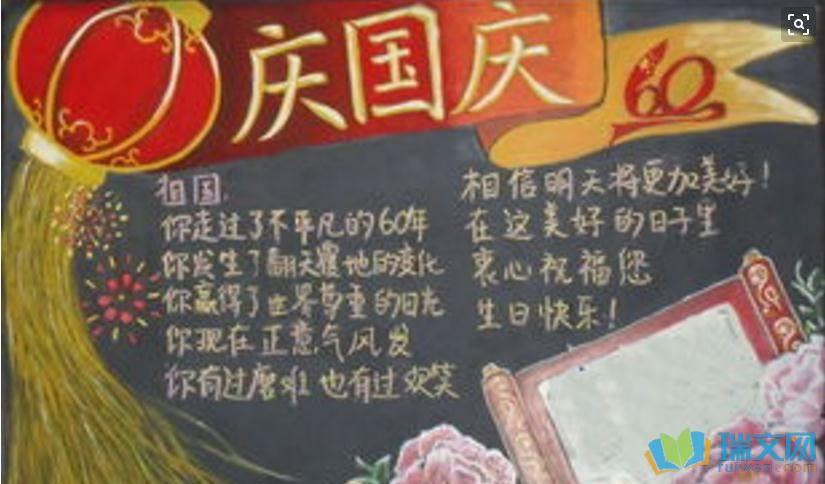 庆国庆
60
祖国，
你走过了不平凡的60年
你发生了翻天覆地的变化
你赢得了世界尊重的目光
你现在正意气风发
你有过磨难也有过欢笑
相信明天将更加美好！
在这美好的日子里
衷心祝福您
生日快乐！
瑞文网
ruiwen.com